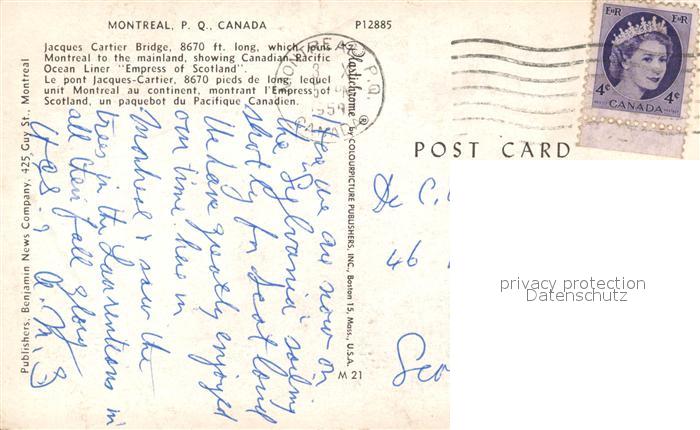 MONTREAL, P. Q., CANADA
P12885
Jacques Cartier Bridge, 8670 ft. long, which joins
Montreal to the mainland, showing Canadian Pacific
Ocean Liner "Empress of Scotland".
Le pont Jacques-Cartier, 8670 pieds de long, lequel
unit Montreal au continent, montrant l'Empress of
Scotland, un paquebot du Pacifique Canadien.
Publishers, Benjamin News Company, 425 Guy St., Montreal
Plastichrome ® by COLOURPICTURE PUBLISHERS, INC., Boston 15, Mass., U.S.A.
M 21
Here we are now on
the "Sylvania" sailing
shortly for Scotland
We have greatly enjoyed
our time here in
Montreal & saw the
trees in the Laurentions in
all their fall glory
POST CARD
E II R
E II R
4¢
4¢
CANADA
MONTREAL P.Q.
CANADA
Dr C.
46
privacy protection
Datenschutz